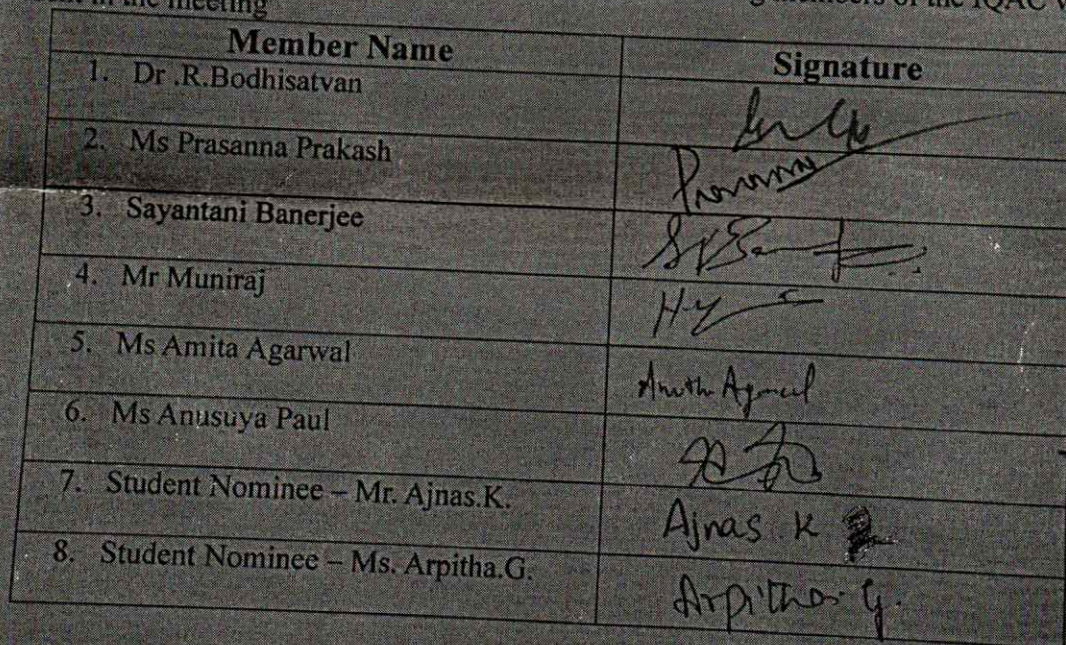 in the meeting members of the IQAC
Member Name Signature
1. Dr .R.Bodhisatvan
2. Ms Prasanna Prakash
3. Sayantani Banerjee
4. Mr Muniraj
5. Ms Amita Agarwal
6. Ms Anusuya Paul
7. Student Nominee – Mr. Ajnas.K. Ajnas K
8. Student Nominee – Ms. Arpitha.G. Arpitha. G.